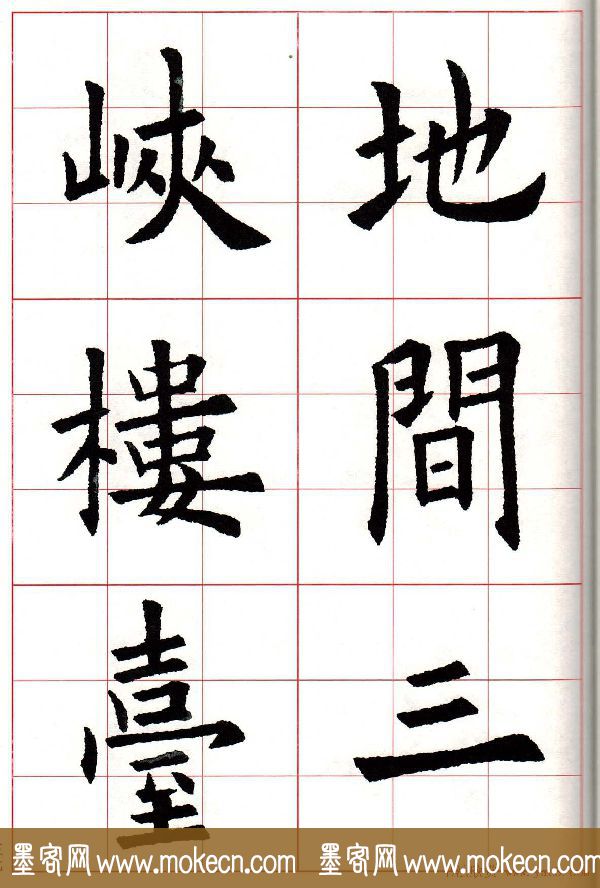 地間三
峽樓臺
墨客网 www.mokecn.com 墨客网 www.mokecn.com